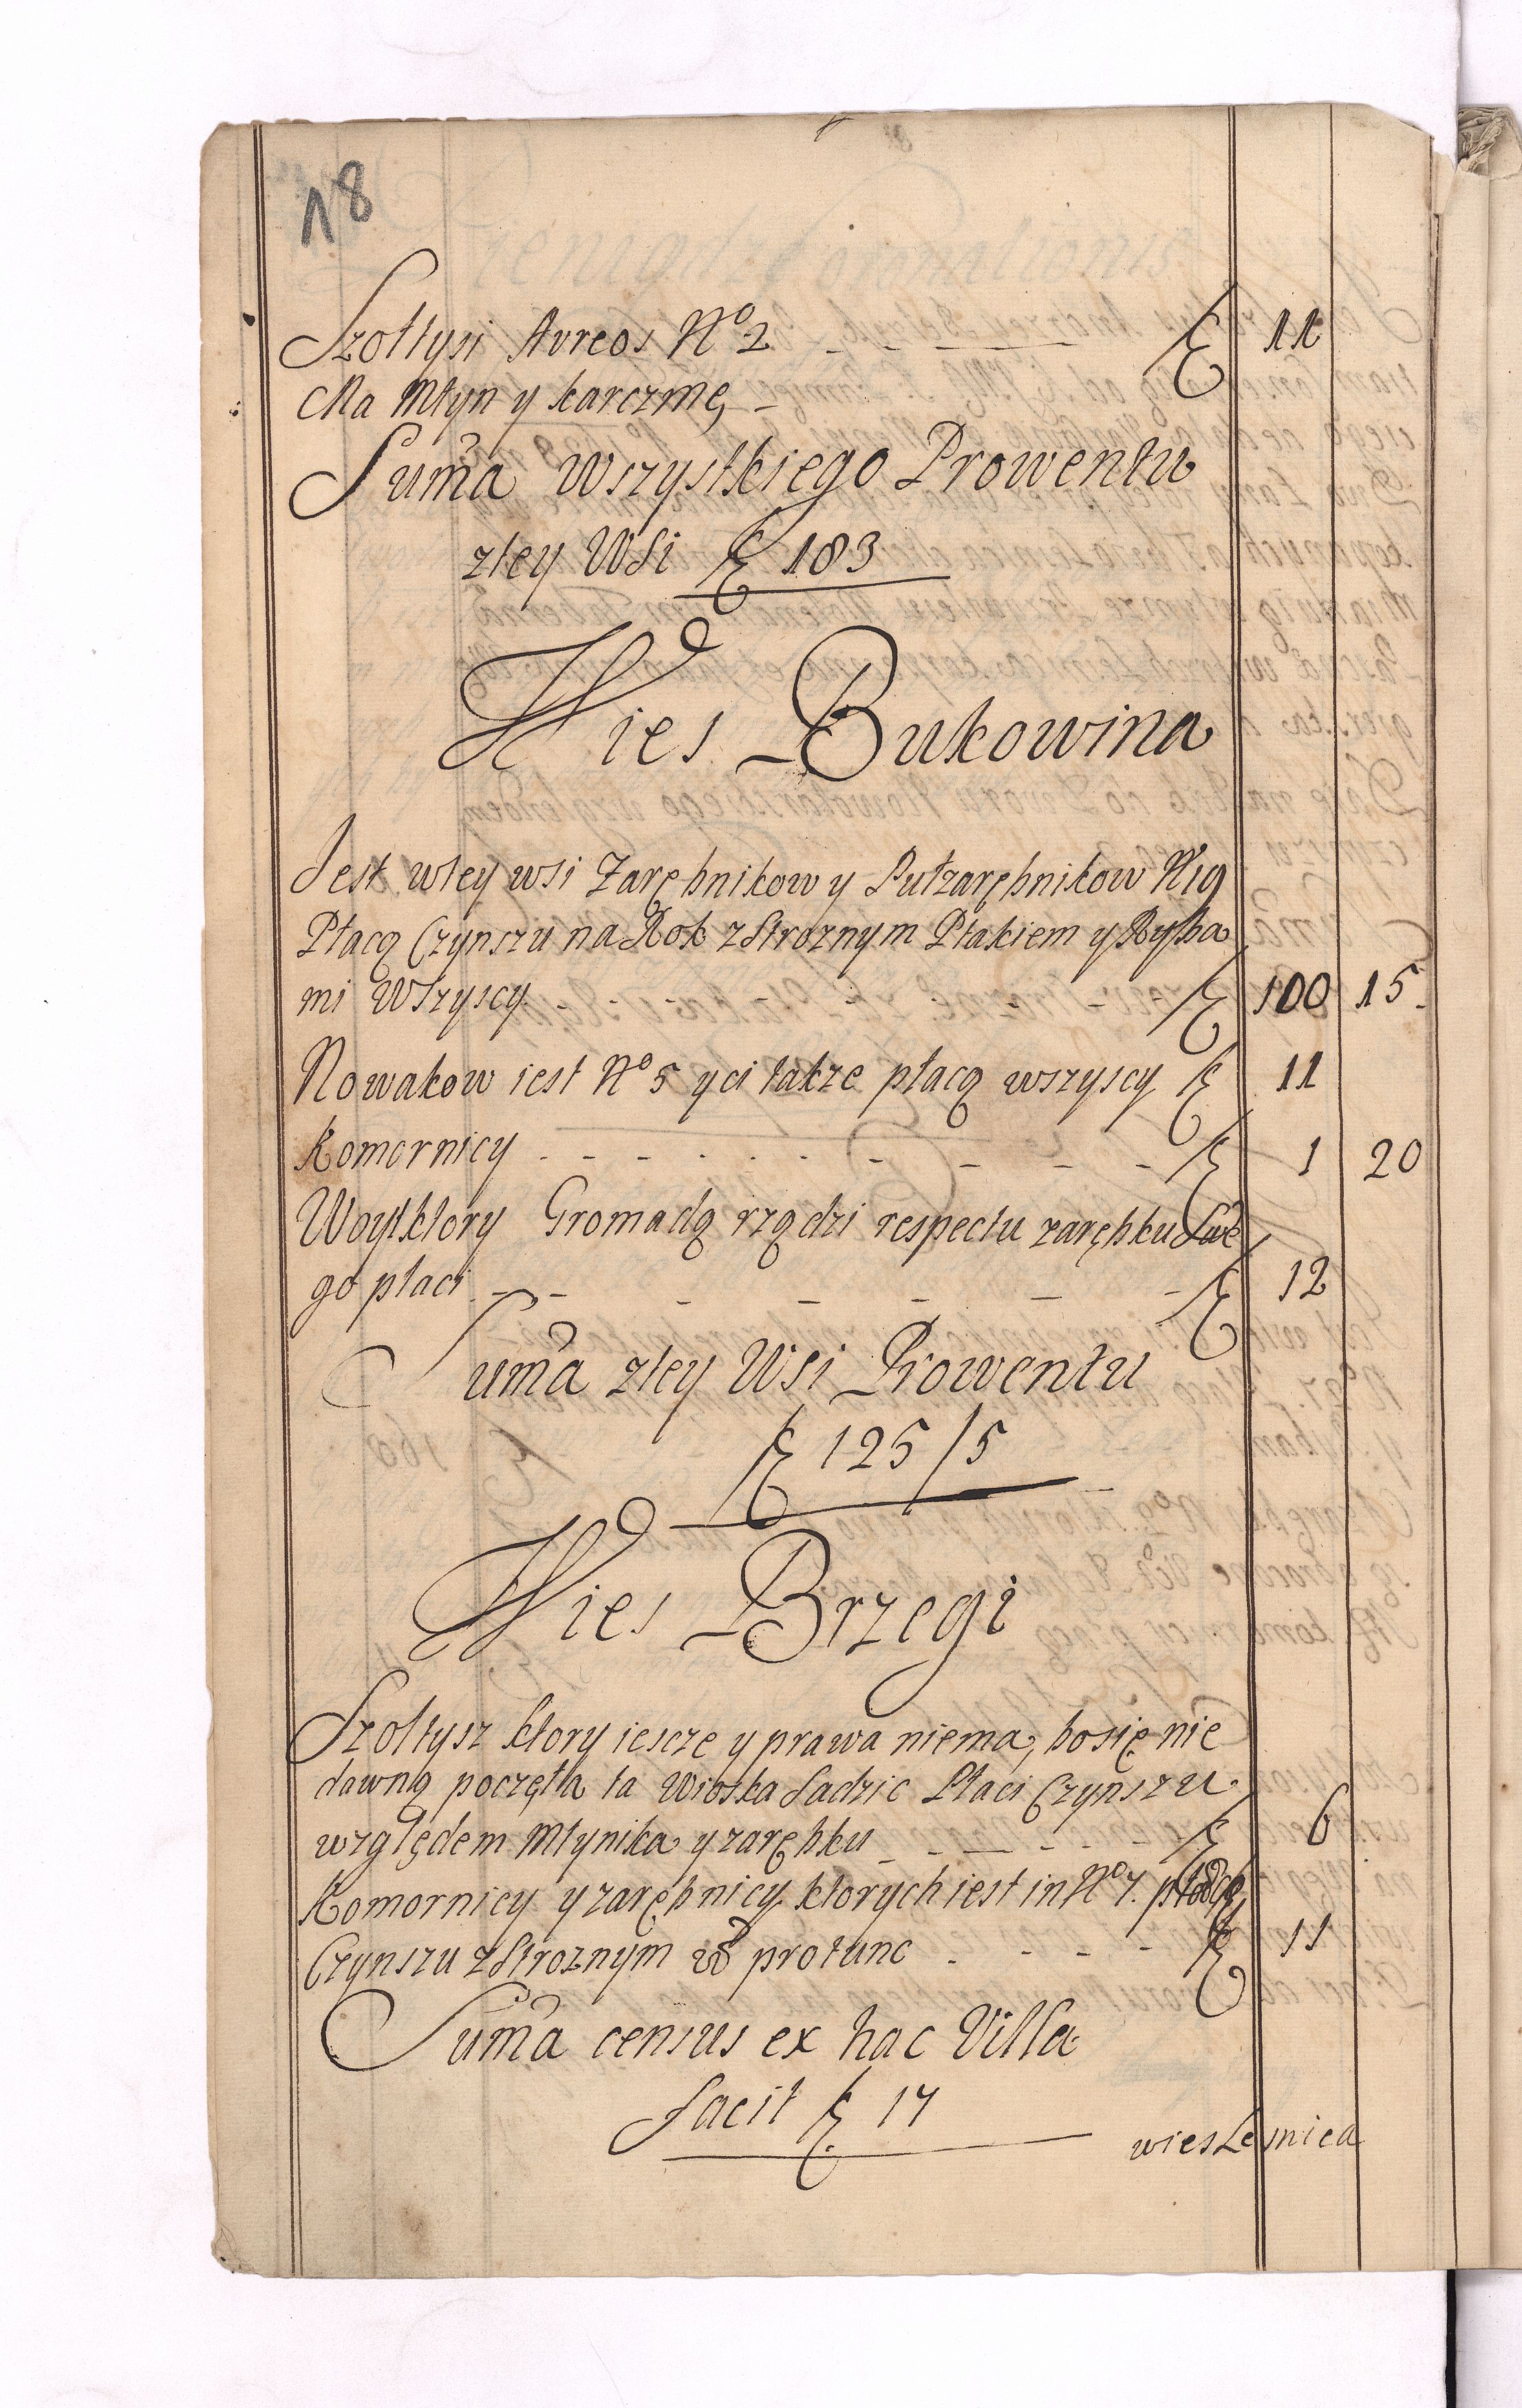 18
Szołtysi Avreos No 2 - - - f 11
Ma Młyn y karczmę -
Sum̃a Wszystkiego Prowentu
ztey WSi f 183
Wies Bukowina
Jest wtey wsi Zarębnikow y Pułzarębnikow N19
Płacą Czynszu na Rok z Stroznym Ptakiem y Ryba
mi Wszyscy - - - f 100 15.
Nowakow iest No 5 y ci takze płacą wszyscy f 11
Komornicy - - - f 1 20
Woyt ktory Gromadą rządzi respectu zarębku Swe
go płaci - - - f 12
Sum̃a ztey WSi Prowentu
f 125/5
Wies Brzegi
Szołtysz ktory iescze y prawa niema, bo się nie
dawno poczęła ta Wioska Sadzic Płaci Czynszu
względem Młynika y zarębku - - - f 6
Komornicy y zarębnicy ktorych iest in No 7. płacą
Czynszu z Stroznym protunc - - - f 11
Sum̃a census ex hac Villa
facit f 17
wies Lesnica